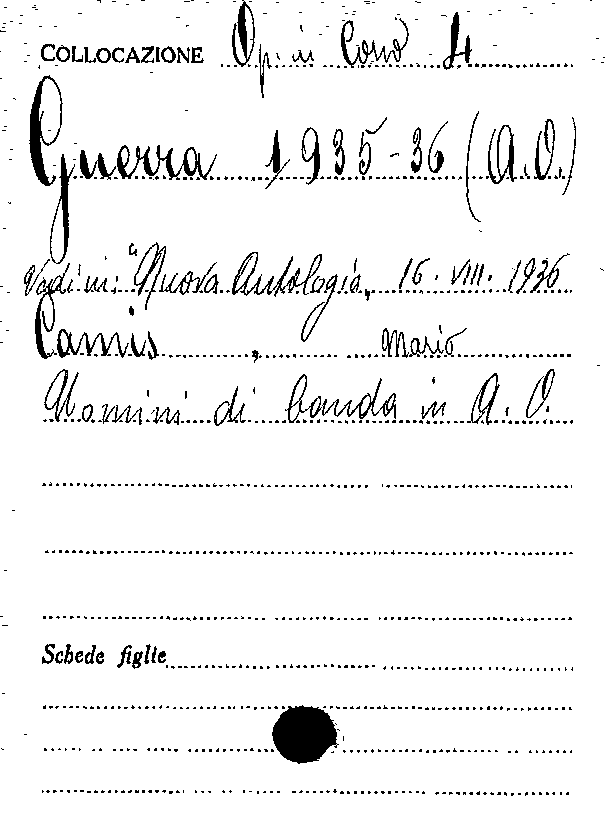 COLLOCAZIONE Op. in Corso 4
Guerra 1935-36 (A.O.)
Vedi in: "Nuova Antologia„ 16. VIII. 1936
Camis, Mario
Uomini di banda in A. O.
Schede figlie